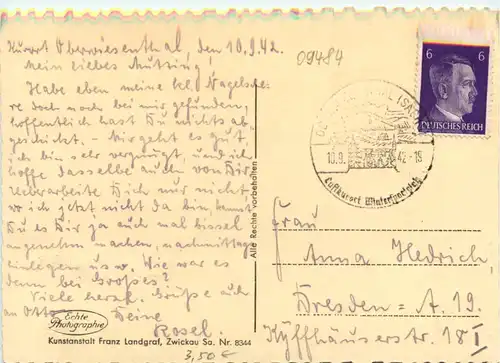 Kurort Oberwiesenthal, den 10.9.42.
Mein liebes Mutting!
Habe eben meine kl. Nagelsche-
re doch noch bei mir gefunden,
hoffentlich hast Du nichts ab-
geschickt. – Mir geht es gut,
ich bin sehr vergnügt, und ich
hoffe dasselbe auch von Dir.
Ueberarbeite Dich nur nicht,
wo ich jetzt nicht da bin, kannst
Du es Dir ja auch mal bissel
angenehm machen, nachmittags
einlegen usw. Wie war es
denn bei Großes?
Viele herzl. Grüße auch
an Otto, Deine
Rosel.
Echte
Photographie
Kunstanstalt Franz Landgraf, Zwickau Sa. Nr. 8344
3,50 €
Alle Rechte vorbehalten
09484
6 6
DEUTSCHES REICH
10.9. 42-15
Luftkurort Wintersportplatz
Frau
Anna Hedrich,
Dresden – A. 19.
Kyffhäuserstr. 18 I